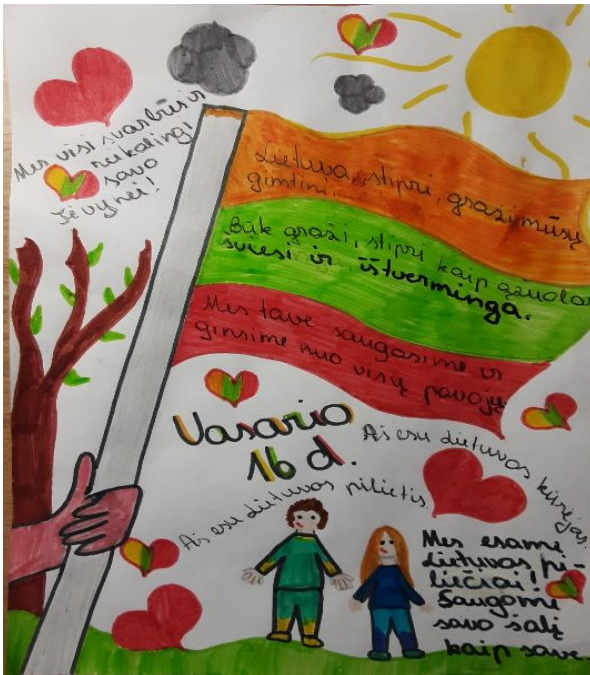 Mes visi svarbūs ir
reikalingi
savo
Tėvynei!
Lietuva, stipri, graži mūsų
gimtinė,
Būk graži, stipri kaip ąžuolas
šviesi ir ištverminga.
Mes tave saugosime ir
ginsime nuo visų pavojų
Vasario
16 d.
Aš esu Lietuvos kūrėjas.
Aš esu Lietuvos pilietis.
Mes esame
Lietuvos pi-
liečiai!
Saugome
savo šalį
kaip save.